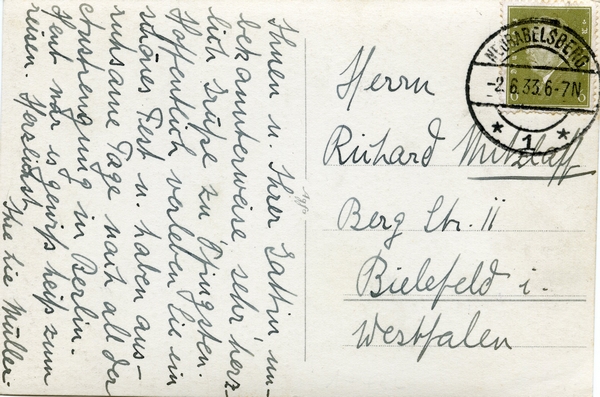 Ihnen u. Ihrer Gattin un-
bekannterweise sehr herz-
lich Grüße zu Pfingsten.
Hoffentlich verleben Sie ein
schönes Fest u. haben aus-
ruhsame Tage nach all der
Anstrengung in Berlin.
Heut war is gewiß heiß zum
reisen. Herzlichst,
Ihre Lie Müller
NEUBABELSBERG
-2.6.33.6-7N
* 1 *
Herrn
Richard Mitzlaff
Berg Str. 11
Bielefeld i.
Westfalen